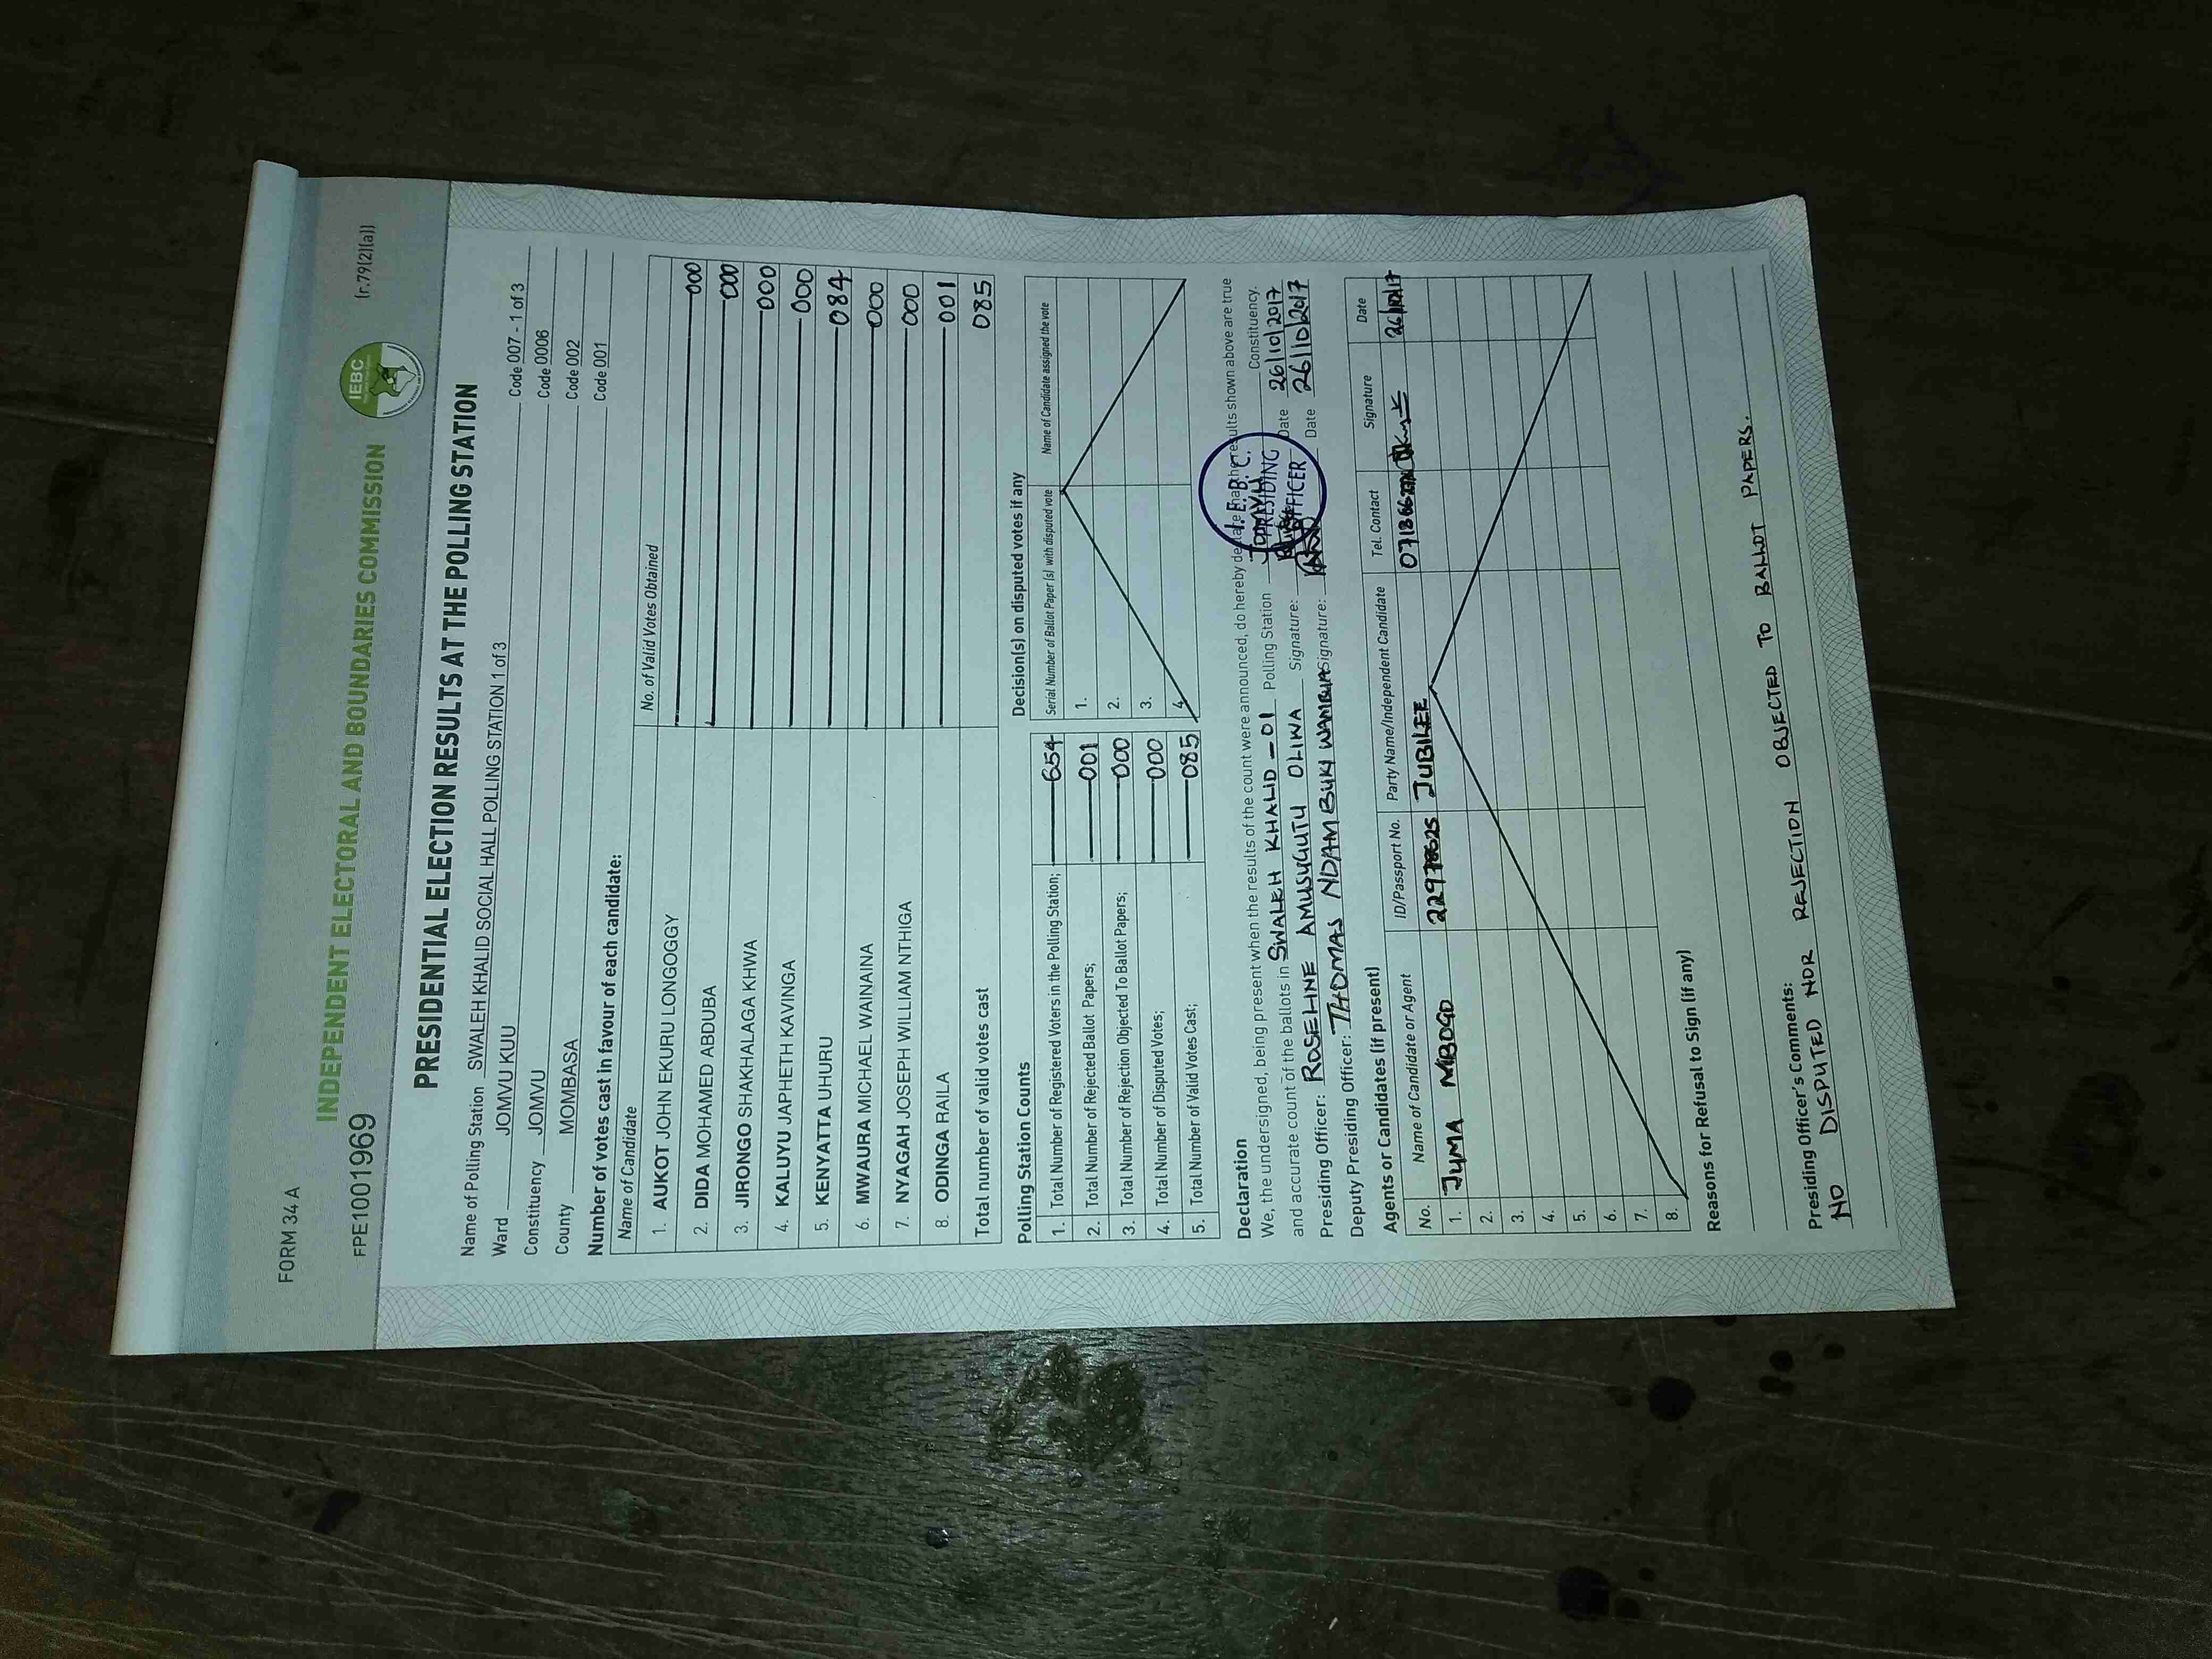 FORM 34 A
(r.79(2)(a))
INDEPENDENT ELECTORAL AND BOUNDARIES COMMISSION
IEBC
FPE1001969
PRESIDENTIAL ELECTION RESULTS AT THE POLLING STATION
Name of Polling Station SWALEH KHALID SOCIAL HALL POLLING STATION 1 of 3 Code 007 - 1 of 3
Ward JOMVU KUU Code 0006
Constituency JOMVU Code 002
County MOMBASA Code 001
Number of votes cast in favour of each candidate:
Name of Candidate No. of Valid Votes Obtained
1. AUKOT JOHN EKURU LONGOGGY 000
2. DIDA MOHAMED ABDUBA 000
3. JIRONGO SHAKHALAGA KHWA 000
4. KALUYU JAPHETH KAVINGA 000
5. KENYATTA UHURU 084
6. MWAURA MICHAEL WAINAINA 000
7. NYAGAH JOSEPH WILLIAM NTHIGA 000
8. ODINGA RAILA 001
Total number of valid votes cast 085
Polling Station Counts
1. Total Number of Registered Voters in the Polling Station; 654
2. Total Number of Rejected Ballot Papers; 001
3. Total Number of Rejection Objected To Ballot Papers; 000
4. Total Number of Disputed Votes; 000
5. Total Number of Valid Votes Cast; 085
Decision(s) on disputed votes if any
Serial Number of Ballot Paper (s) with disputed vote Name of Candidate assigned the vote
1.
2.
3.
4.
Declaration
We, the undersigned, being present when the results of the count were announced, do hereby declare that the results shown above are true
and accurate count of the ballots in SWALEH KHALID - 01 Polling Station JOMVU Constituency.
Presiding Officer: ROSELINE AMUSUGUTU OLIWA Signature: Date 26/10/2017
Deputy Presiding Officer: THOMAS NDAMBUKI WAMBUA Signature: Date 26/10/2017
I.E.B.C.
PRESIDING
OFFICER
Agents or Candidates (if present)
No. Name of Candidate or Agent ID/Passport No. Party Name/Independent Candidate Tel. Contact Signature Date
1. JUMA MBOGO JUBILEE 26/10/17
2.
3.
4.
5.
6.
7.
8.
Reasons for Refusal to Sign (if any)
Presiding Officer's Comments:
NO DISPUTED NOR REJECTION OBJECTED TO BALLOT PAPERS.